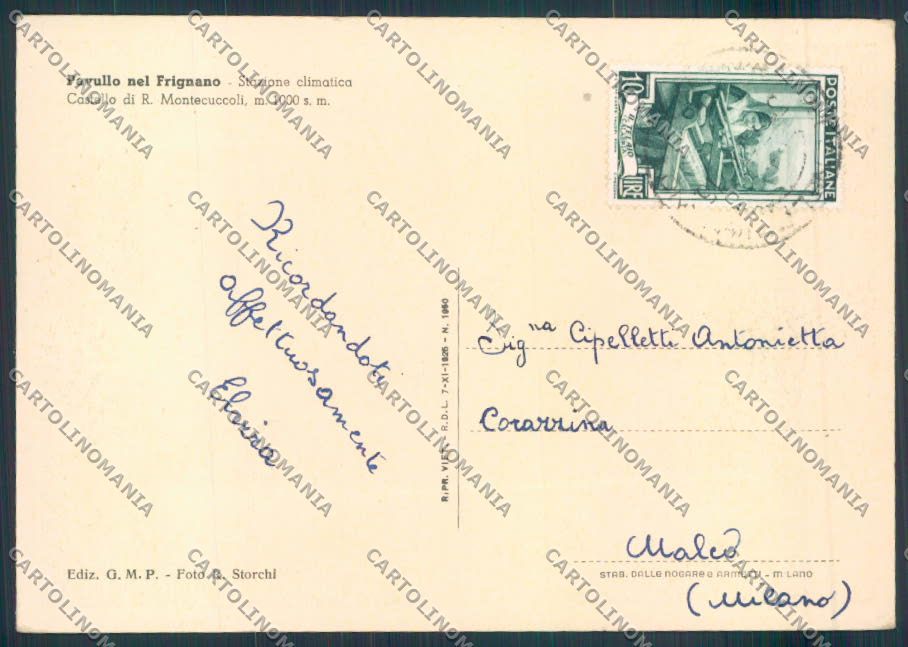 Pavullo nel Frignano - Stazione climatica
Castello di R. Montecuccoli, m. 1000 s. m.
10
LIRE
POSTE ITALIANE
Ricordandoti
affettuosamente
Elvira
RIPR. VIET. R.D.L. 7-XI-1925 - N. 1950
Sig.na Cipelletti Antonietta
Corazzina
Maleo
(Milano)
Ediz. G. M. P. - Foto R. Storchi
STAB. DALLE NOGARE e ARMETTI - MILANO
CARTOLINOMANIA